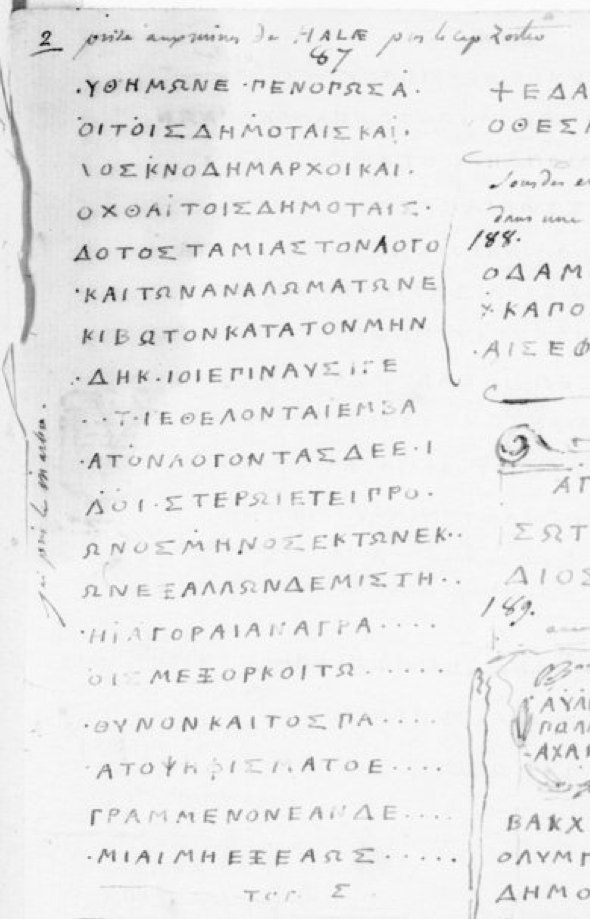 2 prise aux mines de HALÆ près le cap Zoster
87
·ΥΘΗΜΩΝΕ·ΠΕΝΟΠΩΣΑ·
ΟΙΤΟΙΣΔΗΜΟΤΑΙΣΚΑΙ·
\ΟΣΚΝΟΔΗΜΑΡΧΟΙΚΑΙ·
ΟΧΘΑΙΤΟΙΣΔΗΜΟΤΑΙΣ·
ΔΟΤΟΣΤΑΜΙΑΣΤΟΝΛΟΓΟ
·ΚΑΙΤΩΝΑΝΑΛΩΜΑΤΩΝΕ
ΚΙΒΩΤΟΝΚΑΤΑΤΟΝΜΗΝ
·ΔΗΚ·ΙΟΙΕΠΙΝΑΥΣΙΓΕ
··Τ·ΙΕΘΕΛΟΝΤΑΙΕΜΒΑ
·ΑΤΟΝΛΟΓΟΝΤΑΣΔΕΕ·Ι
ΛΟΙ·ΣΤΕΡΩΙΕΤΕΙΠΡΟ·
ΩΝΟΣΜΗΝΟΣΕΚΤΩΝΕΚ··
ΩΝΕΞΑΛΛΩΝΔΕΜΙΣΤΗ··
·ΗΙΑΓΟΡΑΙΑΝΑΓΡΑ····
ΟΙΣΜΕΞΟΡΚΟΙΤΩ·····
·ΘΥΝΟΝΚΑΙΤΟΣΠΑ····
·ΑΤΟΨΗΦΙΣΜΑΤΟΕ····
ΓΡΑΜΜΕΝΟΝΕΑΝΔΕ····
·ΜΙΑΙΜΗΕΞΕΑΩΣ·····
ΤΟΓ· Σ
j'ai pris le marbre.
+ΕΔΑ
ΟΘΕΣ
dans une
188.
ΟΔΑΜ
ΚΑΠΟ
·ΑΙΣΕΦ
ΑΠ
ΣΩΤ
ΔΙΟΣ
189.
ΑΥΛ
ΠΩΛ
ΑΧΑΙ
ΒΑΚΧ
ΟΛΥΜΠ
ΔΗΜΟ